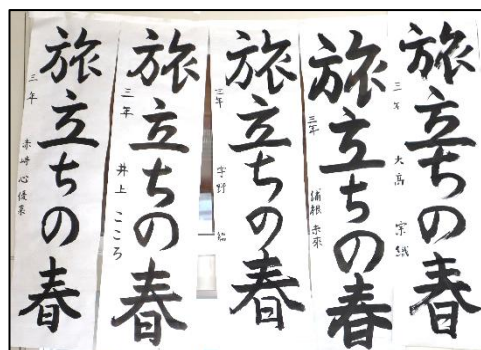 旅立ちの春
三年 大高
旅立ちの春
三年 未來
旅立ちの春
三年 宇野
旅立ちの春
三年 井上 こころ
旅立ちの春
三年